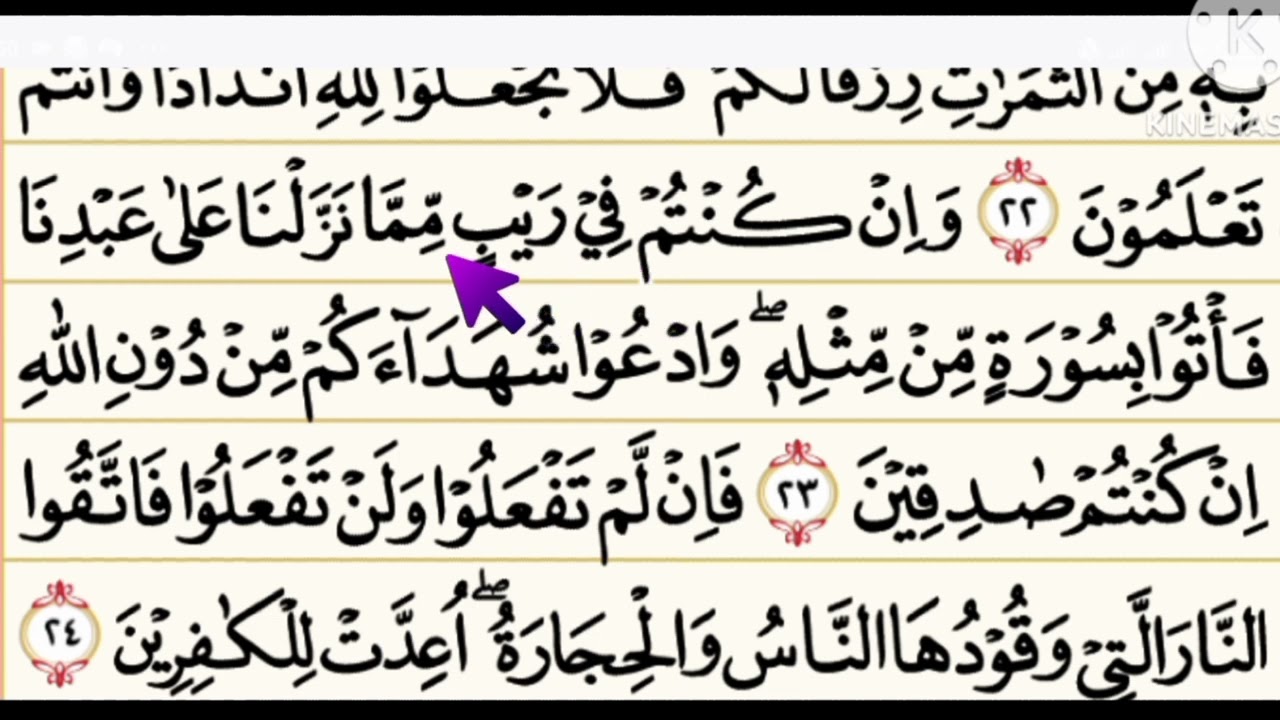 بِهٖ مِنَ الثَّمَرٰتِ رِزْقًا لَّكُمْ فَلَا تَجْعَلُوْا لِلّٰهِ اَنْدَادًا وَّاَنْتُمْ
تَعْلَمُوْنَ ٢٢ وَاِنْ كُنْتُمْ فِيْ رَيْبٍ مِّمَّا نَزَّلْنَا عَلٰى عَبْدِنَا
فَأْتُوْا بِسُوْرَةٍ مِّنْ مِّثْلِهٖ ۖ وَادْعُوْا شُهَدَآءَكُمْ مِّنْ دُوْنِ اللّٰهِ
اِنْ كُنْتُمْ صٰدِقِيْنَ ٢٣ فَاِنْ لَّمْ تَفْعَلُوْا وَلَنْ تَفْعَلُوْا فَاتَّقُوا
النَّارَ الَّتِيْ وَقُوْدُهَا النَّاسُ وَالْحِجَارَةُ ۖ اُعِدَّتْ لِلْكٰفِرِيْنَ ٢٤
K
KINEMAS